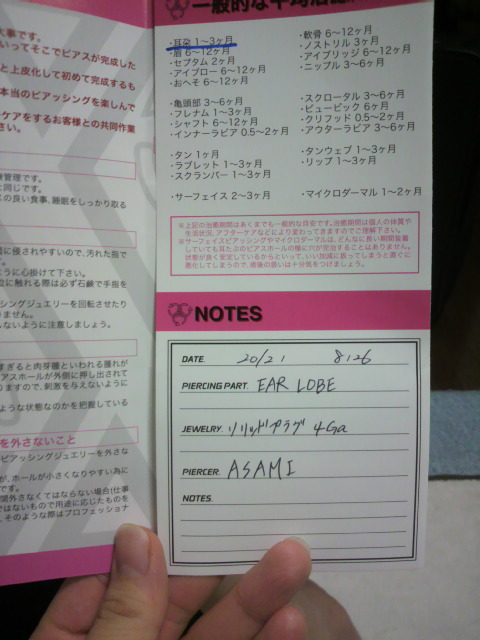 大事です。
いってそこでピアスが完成した
と上皮化して初めて完成するも
本当のピアッシングを楽しんで
ケアをするお客様との共同作業
さい。
管理です。
と同じです。
の良い食事、睡眠をしっかり取る
に侵されやすいので、汚れた指で
ように心掛けて下さい。
位に触れる際は必ず石鹸で手指を
シングジュエリーを回転させたり
りません。
しないように注意しましょう。
すぎると肉芽腫といわれる腫れが
アスホールが外側に押し出されて
りますので、刺激を与えないように
ような状態なのかを把握している
を外さないこと
ピアッシングジュエリーを外さな
が、ホールが小さくなりやすい為に
です。
間外さなくてはならない場合(仕事
ではないもので用途に応じたものを
そのような際はプロフェッショナ
一般的な平均治癒
・耳朶 1〜3ヶ月
・眉 6〜12ヶ月
・セプタム 2ヶ月
・アイブロー 6〜12ヶ月
・おへそ 6〜12ヶ月
・軟骨 6〜12ヶ月
・ノストリル 3ヶ月
・アイブリッジ 6〜12ヶ月
・ニップル 3〜6ヶ月
・亀頭部 3〜6ヶ月
・フレナム 1〜3ヶ月
・シャフト 6〜12ヶ月
・インナーラビア 0.5〜2ヶ月
・スクロータル 3〜6ヶ月
・ピュービック 6ヶ月
・クリフッド 0.5〜2ヶ月
・アウターラビア 3〜6ヶ月
・タン 1ヶ月
・ラブレット 1〜3ヶ月
・スクランパー 1〜3ヶ月
・タンウェブ 1〜3ヶ月
・リップ 1〜3ヶ月
・サーフェイス 2〜3ヶ月
・マイクロダーマル 1〜2ヶ月
※上記の治癒期間はあくまでも一般的な目安です。治癒期間は個人の体質や
生活状況、アフターケアなどにより変わってきますのでご理解下さい。
※サーフェイスピアッシングやマイクロダーマルは、どんなに長い期間装着
していても耳たぶのピアスホールの様に穴が完治することはありません。
状態が良く安定しているからといって、いい加減に扱ってしまうと直ぐに
悪化してしまうので、術後の扱いは十分気をつけましょう。
NOTES
DATE. 20/21 8:26
PIERCING PART. EAR LOBE
JEWELRY. ソリッドプラグ 4Ga
PIERCER. ASAMI
NOTES.